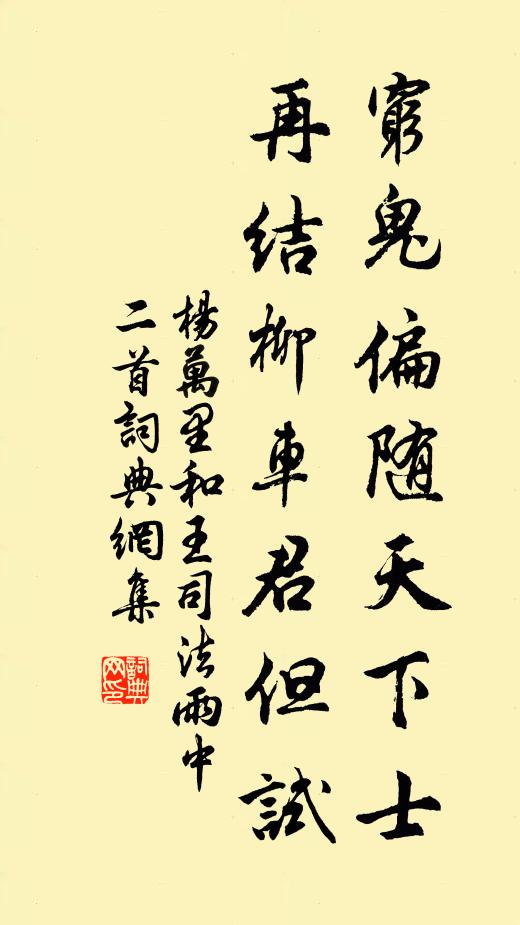 窮鬼偏随天下士
再結柳車君但試
楊萬里和王司法雨中
二首詞典網集
詞典
网印